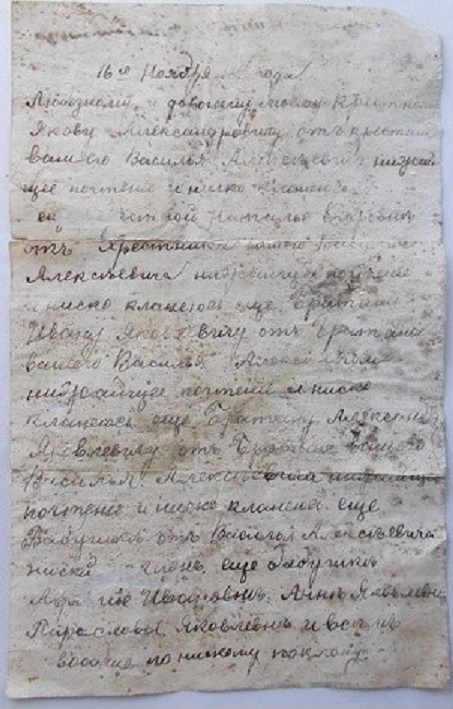 16го Ноября года
Любезному и дорогому моему Крестному
Якову Александровичу отъ крестника
вашего Василья Алексѣевича нижай
щее почтение и ниско кланеюсь
Наталье Егоровне
отъ Крестника вашего Василья
Алексѣевича нижайшие почтение
и ниско кланеюсь еще Братану
Ивану Яковлевичу отъ Братана
вашего Василья Алексѣевича
нижайщее почтение и ниско
кланеюсь еще Братану Александру
Яковлевичу отъ Братана вашего
Василья Алексѣевича нижайщие
почтение и ниско кланеюсь еще
Бабушкѣ отъ Василья Алексѣевича
ниско еще бабушкѣ
Ивановнѣ Аннѣ Яковлевнѣ
Парасковьи Яковлевнѣ и всѣмъ
по нискому поклону